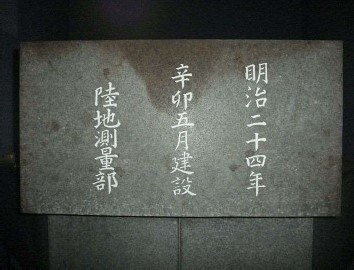 明治二十四年
辛卯五月建設
陸地測量部